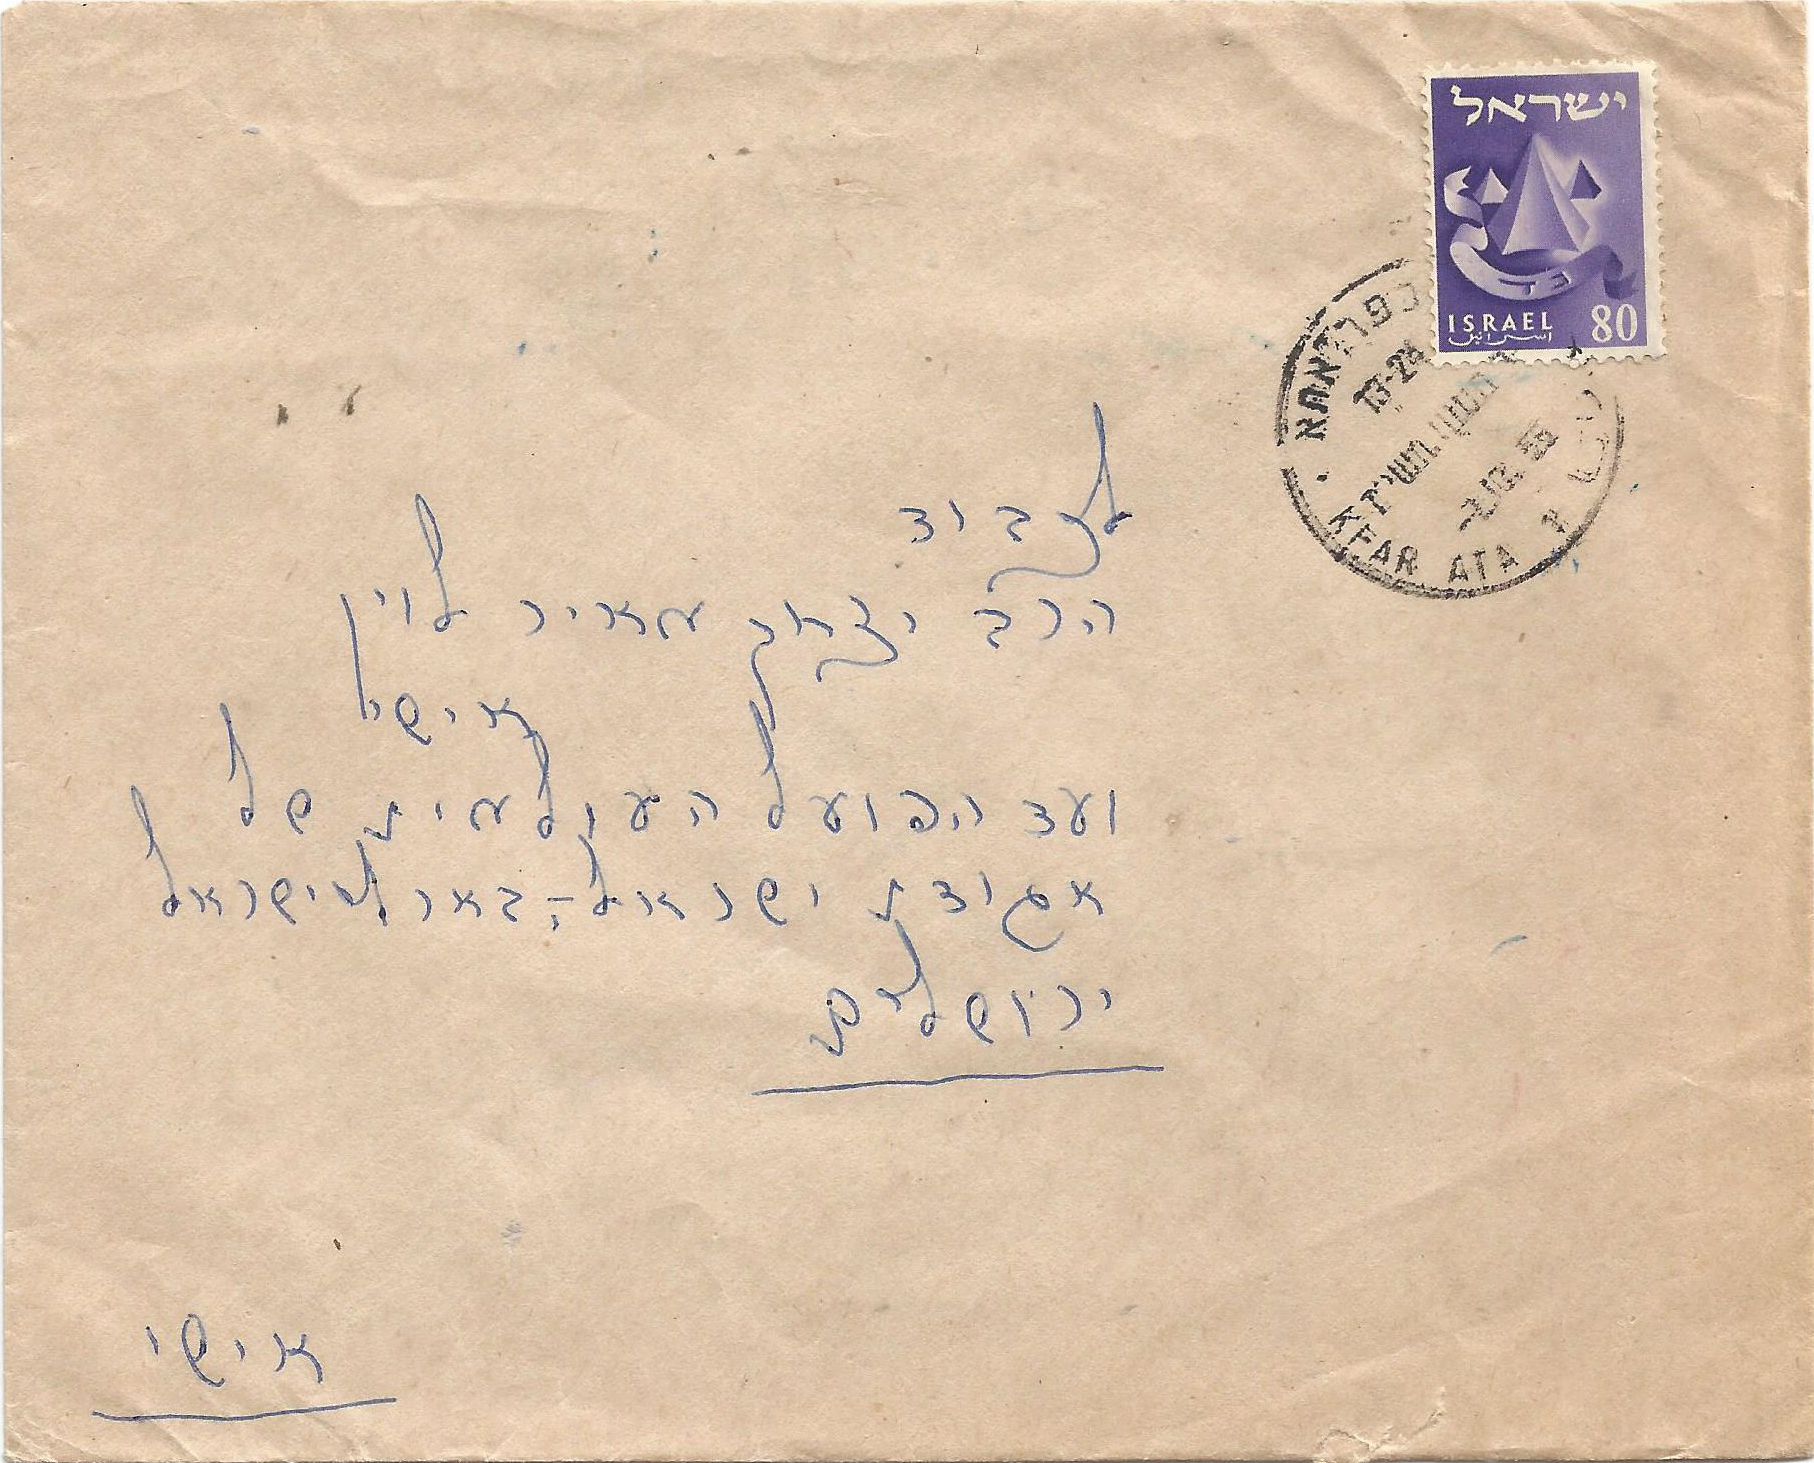 ישראל
גד
ISRAEL 80
اسرائيل
כפר אתא
13-24
KFAR ATA
לכבוד
הרב יצחק מאיר לוין
אישי
ועד הפועל העולמית של
אגודת ישראל - בארץ ישראל
ירושלים
אישי